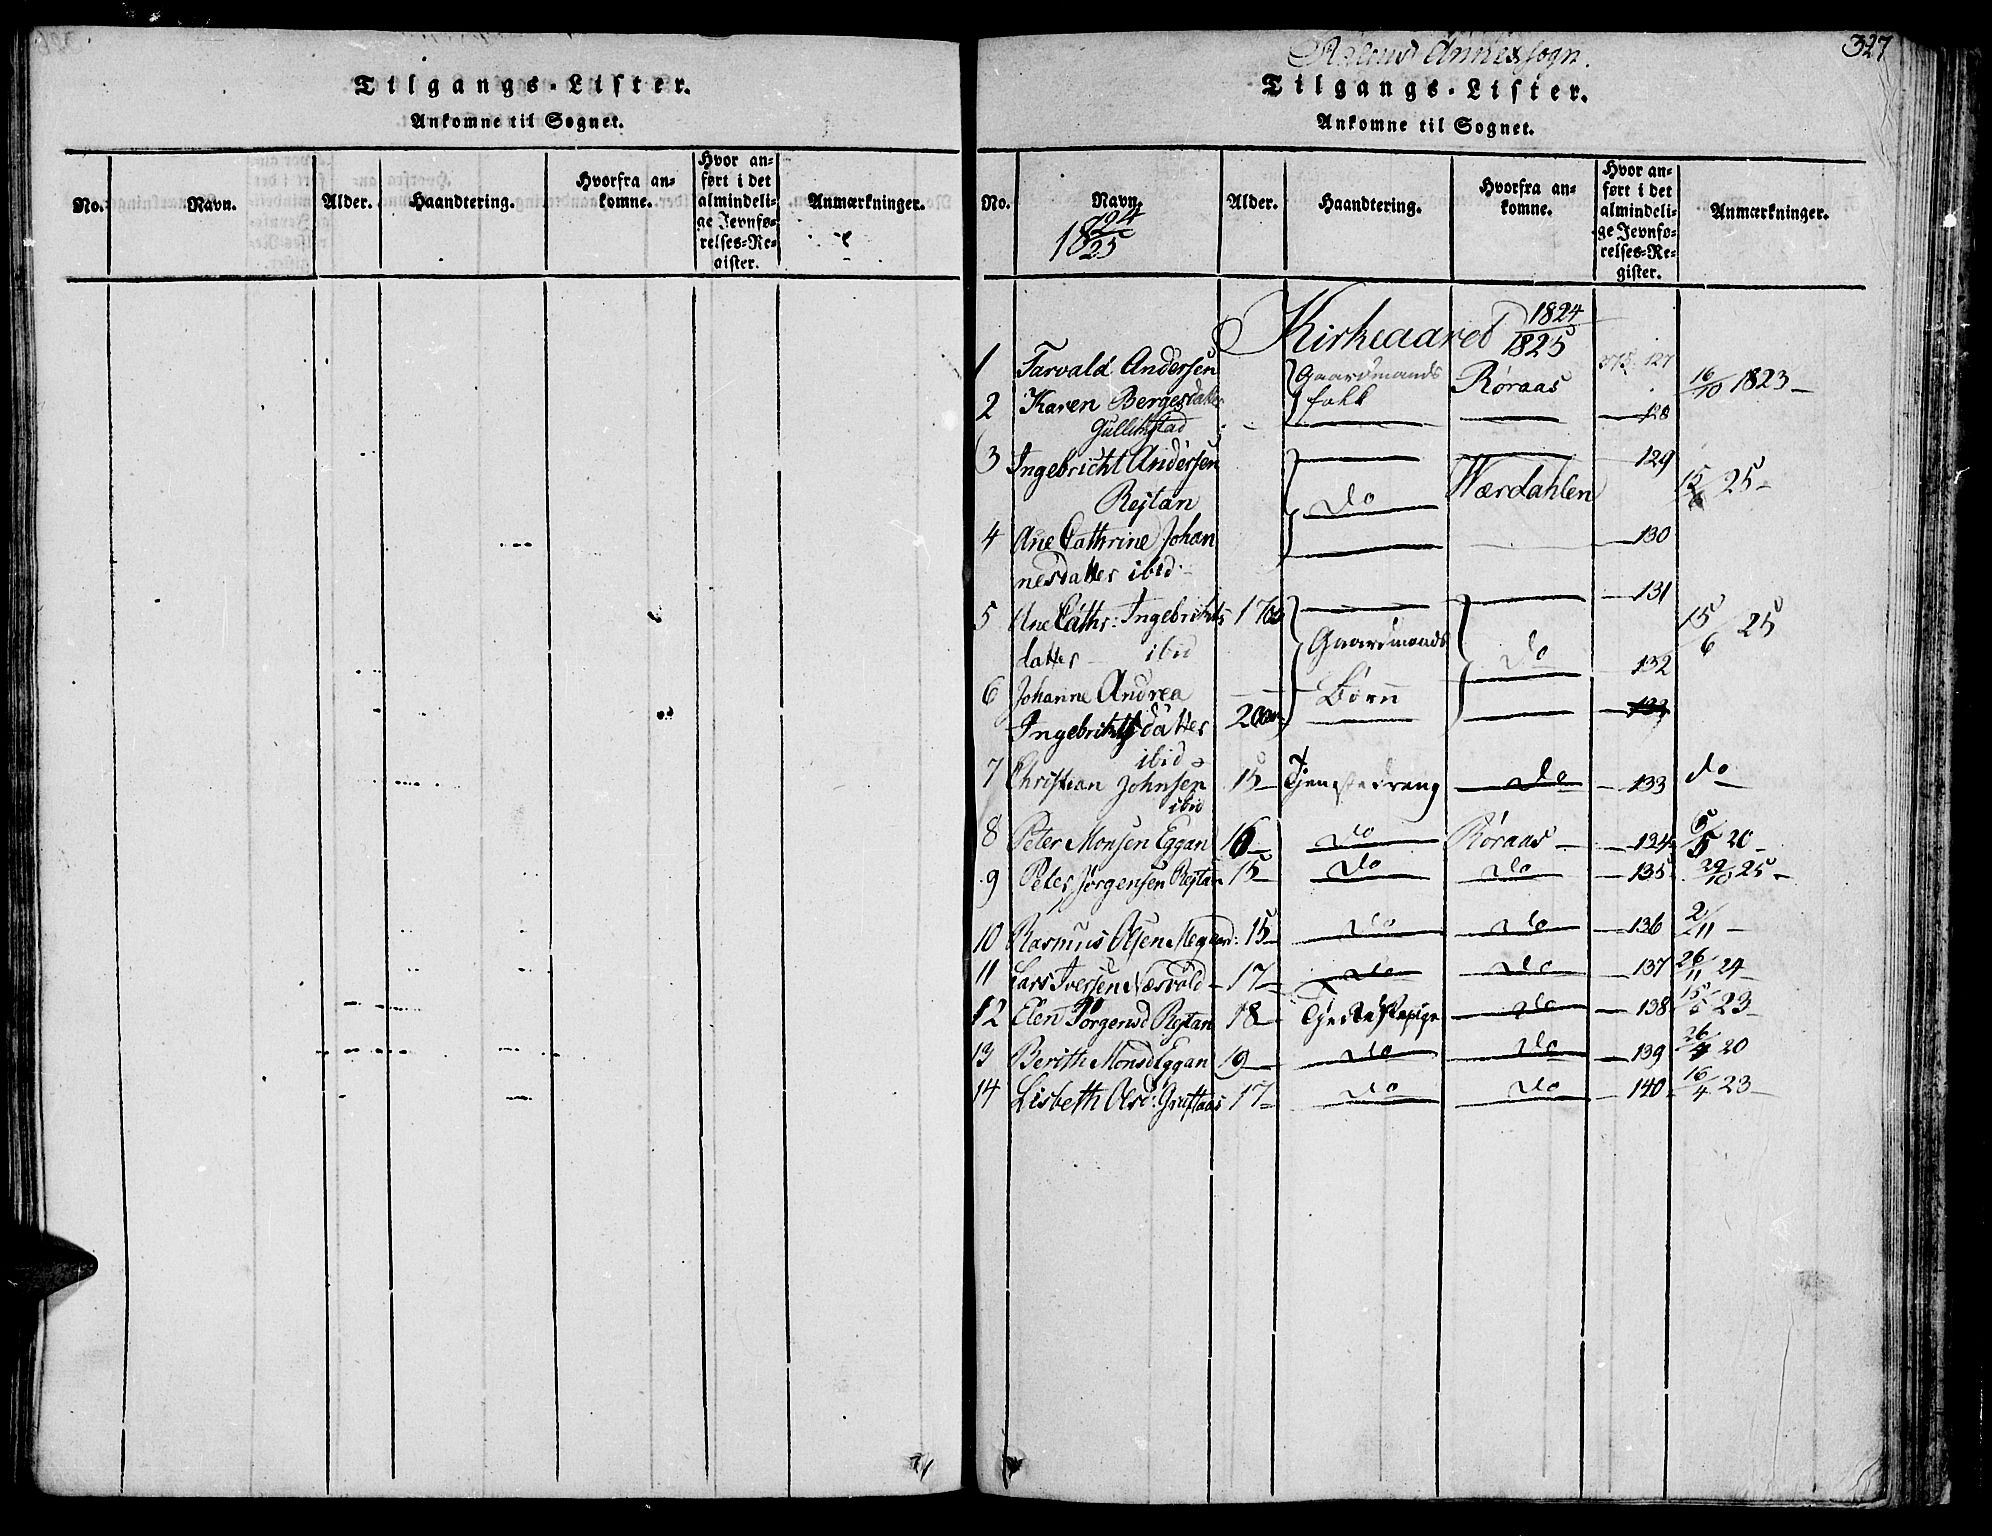 Tilgangs-Lister.
Ankomne til Sognet.
No.
Navn.
Alder.
Haandtering.
Hvorfra an-
komne.
Hvor an-
ført i det
almindeli-
ge Jevnfø-
relses-Re-
gister.
Anmærkninger.
Annexsogn.
327
Tilgangs-Lister.
Ankomne til Sognet.
No.
Navn.
1824
25
Alder.
Haandtering.
Hvorfra an-
komne.
Hvor an-
ført i det
almindeli-
ge Jevnfø-
relses-Re-
gister.
Anmærkninger.
Kirkeaaret 1824
1825
1 Tarvald Andersen Gaardmands Røraas 127 16/10 1823
2 Karen Bergesdatter folk 128
Gullikstad
3 Ingebricht Andersen Do Wærdahlen 129 25
Rejtan
4 Ane Cathrine Johan 130
nesdatter ibid
5 Ane Cathr: Ingebrichts 1 Gaardmands Do 131 15/6 25
datter ibid 132
6 Johanne Andrea Børn
Ingebrichtsdatter 2 133
ibid
7 Christian Johnsen 15 Tjenestedreng Do 133 do
ibid
8 Peter Monsen Eggan 16 Do Røraas 134 20
9 Peter Jørgensen Rejtan 15 Do Do 135 29/10 25
10 Rasmus Olsen 15 Do Do 136 2/11
11 Lars Iversen Næsvold 17 Do Do 137 26/11 24
12 Elen Jørgensd Rejtan 18 Do 138 23
13 Berith Monsd Eggan 19 Do Do 139 26/4 20
14 Lisbeth Olsd: 17 Do Do 140 16/4 23